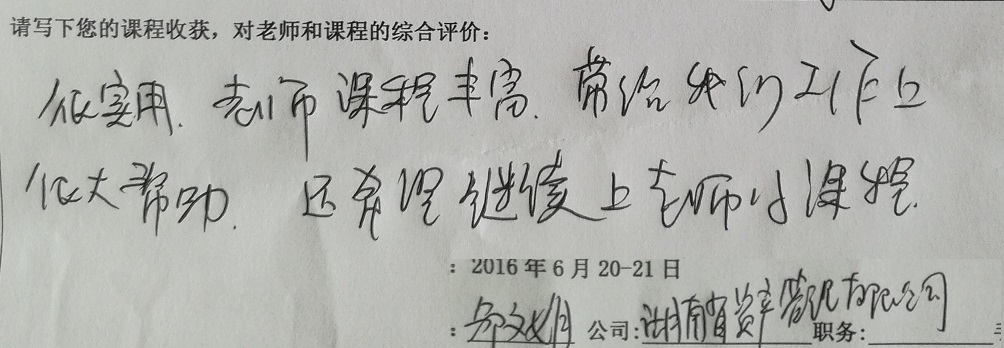 请写下您的课程收获，对老师和课程的综合评价：
很实用. 老师课程丰富. 带给我们工作上
很大帮助. 还希望继续上老师的课程.
：2016年6月20-21日
：邹文娟 公司:湖南省资产管理有限公司 职务: